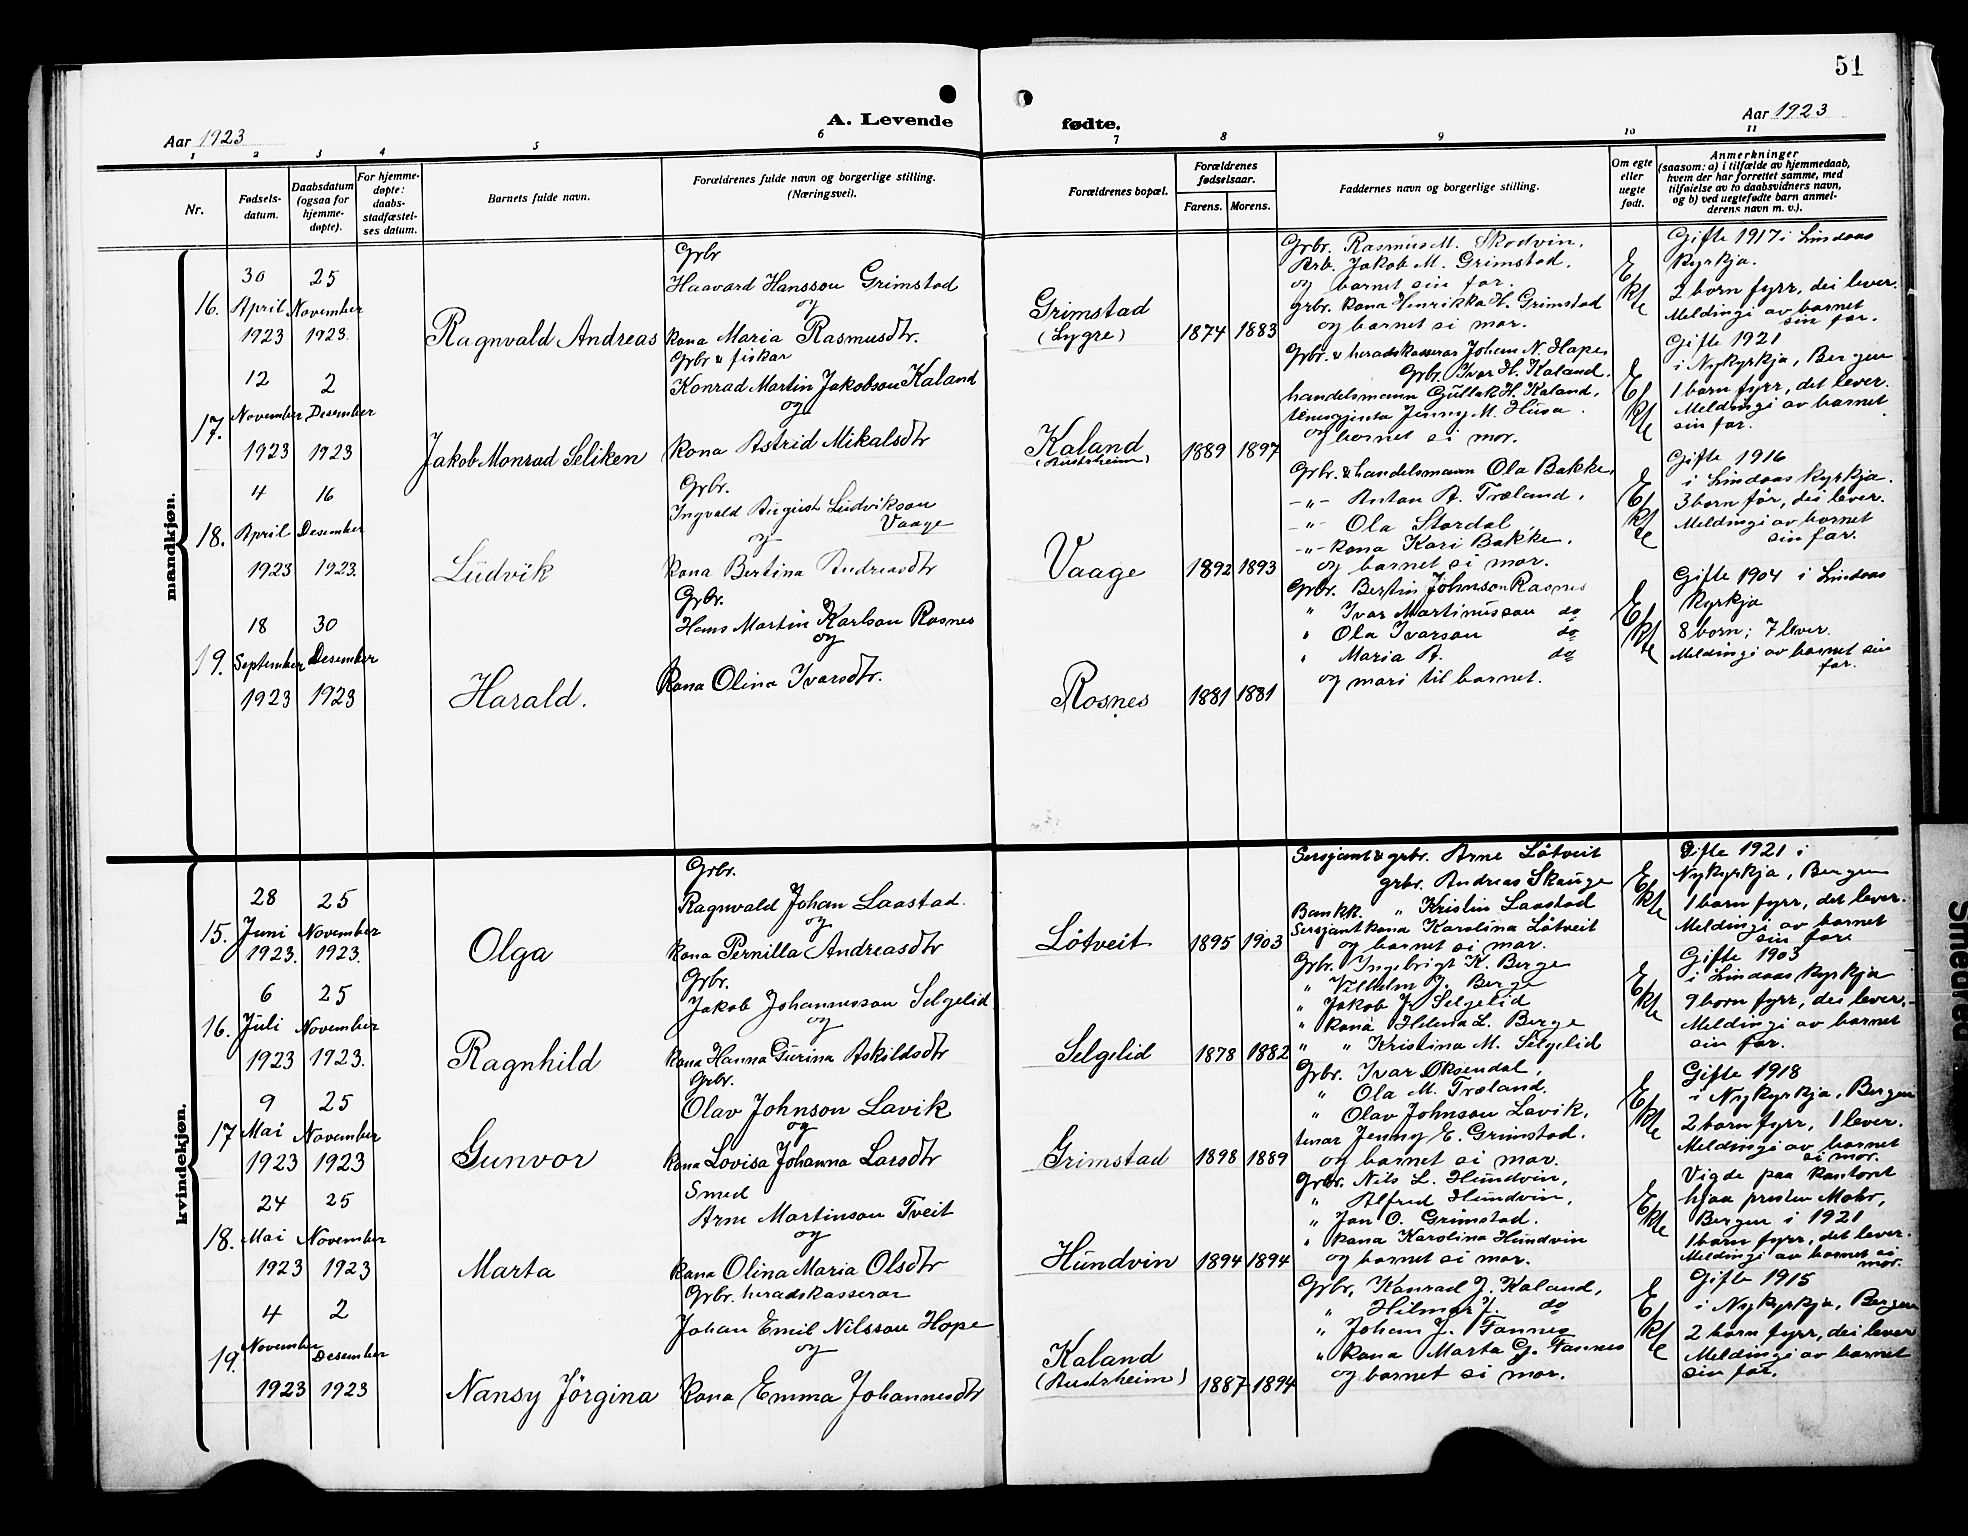 51
A. Levende fødte.
Aar 1923
Aar 1923
1 2 3 4 5 6 7 8 9 10 11
Nr.
Fødsels-
datum.
Daabsdatum
(ogsaa for
hjemme-
døpte).
For hjemme-
døpte:
daabs-
stadfæstel-
ses datum.
Barnets fulde navn.
Forældrenes fulde navn og borgerlige stilling.
(Næringsvei).
Forældrenes bopæl.
Forældrenes
fødselsaar.
Farens. Morens.
Faddernes navn og borgerlige stilling.
Om egte
eller
uegte
født.
Anmerkninger
(saasom: a) i tilfælde av hjemmedaab,
hvem der har forrettet samme, med
tilføielse av to daabsvidners navn,
og b) ved uegtefødte barn anmel-
derens navn m. v.).
mandkjøn.
16.
30
April
1923
25
November
1923.
Ragnvald Andreas
Grbr
Haavard Hansson Grimstad
og
kona Maria Rasmusdtr.
Grimstad
(Lygre)
1874 1883
Grbr. Rasmus M. Skodvin,
Arb. Jakob M. Grimstad,
og barnet sin far.
grbr. kona Henrikka H. Grimstad
og barnet si mor.
Ekte
Gifte 1917 i Lindaas
Kyrkja.
2 born fyrr, dei lever.
Meldingi av barnet
sin far.
17.
12
November
1923
2
Desember
1923
Jakob Monrad Seliken
Grbr & fiskar
Konrad Martin Jakobson Kaland
og
kona Astrid Mikalsdtr
Kaland
(Austrheim)
1889 1897
Grbr. & heradskasserar Johan N. Hope,
Grbr. Ivar H. Kaland,
handelsmann Gullak H. Kaland,
tenesgjenta Jenny M. Husa.
og barnet si mor.
Ekte
Gifte 1921
i Nykyrkja, Bergen
1 born fyrr, det lever.
Meldingi av barnet
sin far.
18.
4
April
1923
16
Desember
1923.
Ludvik
Grbr.
Ingvald August Ludvikson
Vaage
og
kona Bertina Andreasdtr
Vaage
1892 1893
Grbr. & handelsmann Ola Bakke,
-"- Anton A. Træland,
-"- Ola Stordal,
-"- kona Kari Bakke,
og barnet si mor.
Ekte
Gifte 1916
i Lindaas kyrkja.
3 born før, dei lever.
Meldingi av barnet
sin far.
19.
18
September
1923
30
Desember
1923
Harald.
Grbr.
Hans Martin Karlson Rosnes
og
kona Olina Ivarsdtr.
Rosnes
1881 1881
Grbr. Bertin Johnson Rosnes
" Ivar Martinusson do
" Ola Ivarson do
" Maria A. do
og mori til barnet.
Ekte
Gifte 1904 i Lindaas
Kyrkja
8 born; 7 lever.
Meldingi av barnet sin
far.
kvindekjøn.
15.
28
Juni
1923.
25
November
1923.
Olga
Grbr.
Ragnvald Johan Laastad.
og
kona Pernilla Andreasdtr
Løtveit
1895 1903
Sersjant & grbr. Arne Løtveit
grbr. Andreas Skauge
Bankk. " Kristin Laastad
Sersjant kona Karolina Løtveit
og barnet si mor.
Ekte
Gifte 1921 i
Nykyrkja, Bergen
1 born fyrr, det lever.
Meldingi av barnet
sin far.
16.
6
Juli
1923
25
November
1923.
Ragnhild
Grbr.
Jakob Johannesson Selgelid
og
kona Hanna Gurina Askildsdtr
Selgelid
1878 1882
Grbr. Ingebrigt K. Berge
" Vilhelm J. Berge
" Jakob J. Selgelid
" kona Helena L. Berge
" " Kristina M. Selgelid
Ekte
Gifte 1903
i Lindaas kyrkja
9 born fyrr, dei lever.
Meldingi av barnet
sin far.
17
9
Mai
1923
25
November
1923
Gunvor
Grbr.
Olav Johnson Lavik
og
kona Lovisa Johanna Larsdtr
Grimstad
1898 1889
Grbr. Ivar Øksendal,
" Ola M. Træland.
" Olav Johnson Lavik,
tenar Jenny E. Grimstad.
og barnet si mor.
Ekte
Gifte 1918
i Nykyrkja, Bergen
2 born fyrr, 1 lever.
Meldingi av barnet
si mor.
18.
24
Mai
1923
25
November
1923
Marta
Smed
Arne Martinson Tveit
og
kona Olina Maria Olsdtr
Hundvin
1894 1894
Grbr. Nils L. Hundvin,
" Alfred Hundvin,
" Jan O. Grimstad.
" kona Karolina Hundvin
og barnet si mor.
Ekte
Vigde paa kontoret
hjaa presten Mohr,
Bergen i 1921
1 born fyrr, det lever.
Meldingi av barnet si
mor.
19.
4
November
1923
2
Desember
1923
Nansy Jörgina
Grbr. heradskasserar
Johan Emil Nilsson Hope
og
kona Emma Johannesdtr
Kaland
(Austrheim)
1887 1894
Grbr. Konrad J. Kaland,
" Hilmar J. do
" Johan J. Fonnes
" kona Marta G. Fonnes
og barnet si mor.
Ekte
Gifte 1915
i Nykyrkja, Bergen
2 born fyrr, dei lever
Meldingi av barnet
sin far.